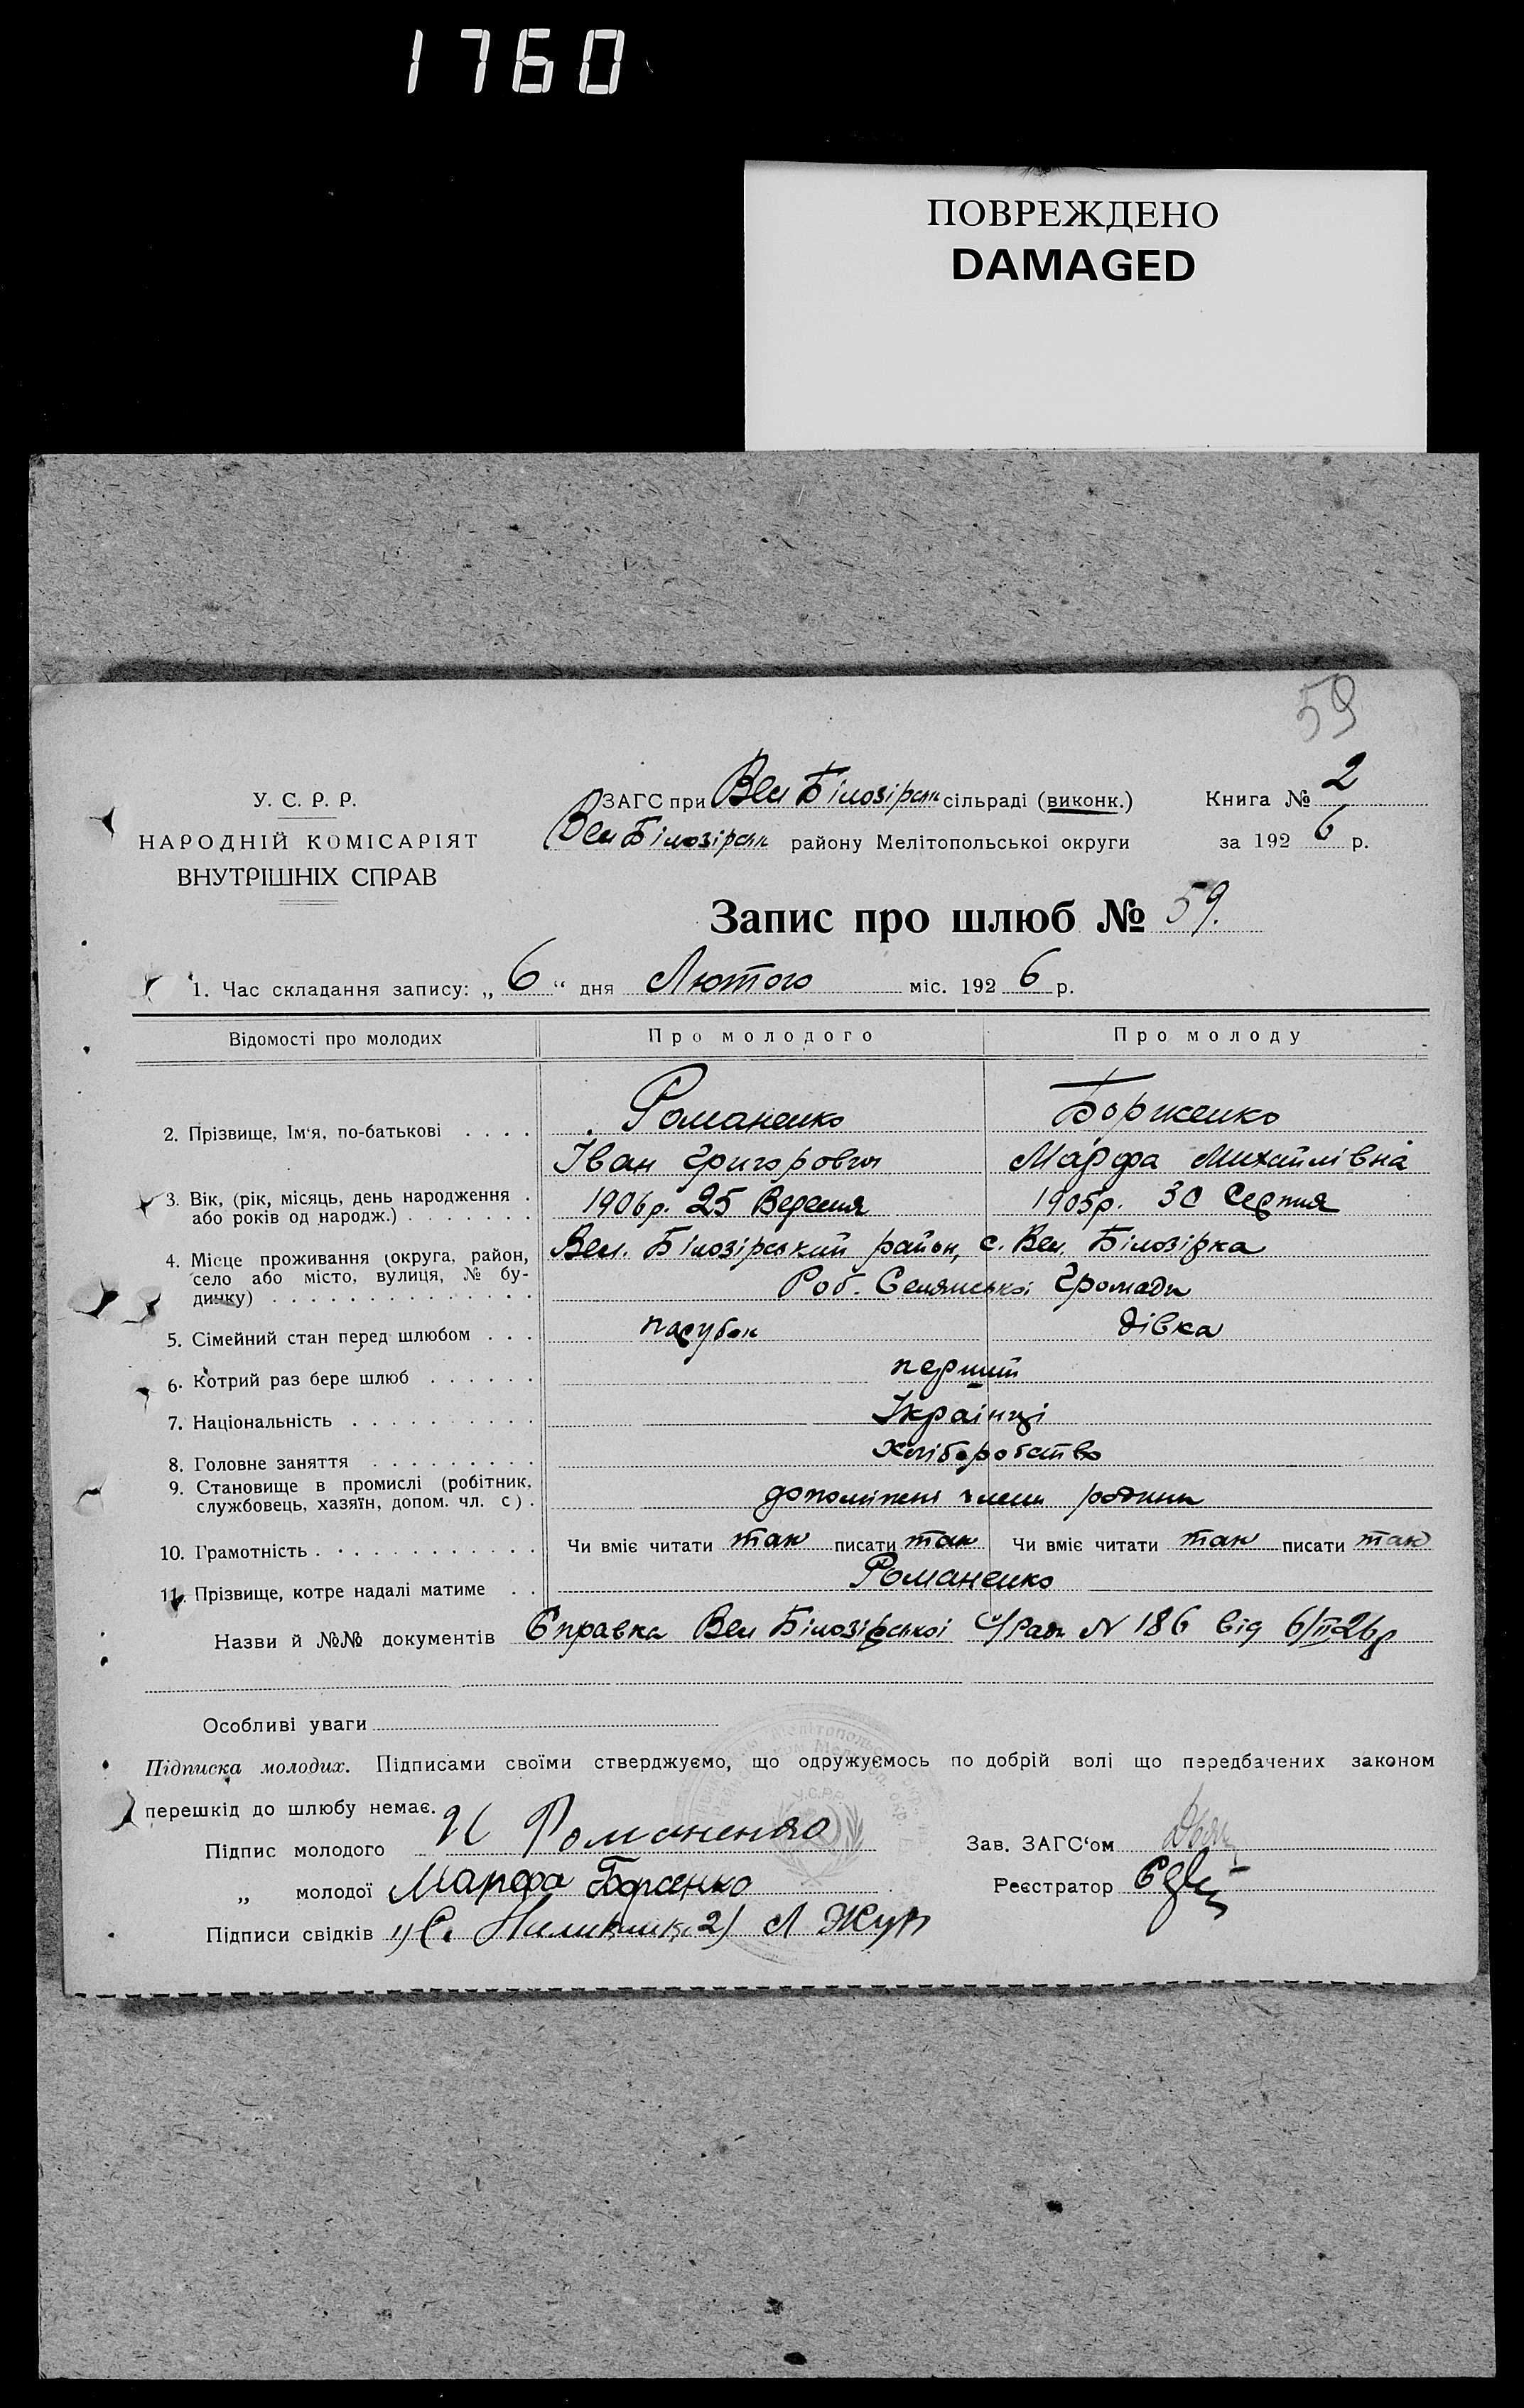 1760
ПОВРЕЖДЕНО
DAMAGED
59
У. С. Р. Р.
НАРОДНІЙ КОМІСАРІЯТ
ВНУТРІШНІХ СПРАВ
ЗАГС при Вел Білозірськ сільраді (виконк.) Книга № 2
Вел Білозірськ району Мелітопольської округи за 1926 р.
Запис про шлюб № 59.
1. Час складання запису: „6“ дня Лютого міс. 1926 р.
Відомості про молодих Про молодого Про молоду
2. Прізвище, Ім‘я, по-батькові . . . . Романенко Борженко
Іван Григорович Марфа Михайлівна
3. Вік, (рік, місяць, день народження . або років од народж.) . . . . . . . 1906р. 25 Вересня 1905р. 30 Серпня
4. Місце проживання (округа, район, Вел. Білозірський район, с. Вел. Білозірка
село або місто, вулиця, № бу-
динку) . . . . . . . . . . . . . . Роб. Селянської Громади
5. Сімейний стан перед шлюбом . . . парубок дівка
6. Котрий раз бере шлюб . . . . . . перший
7. Національність . . . . . . . . . . Українці
8. Головне заняття . . . . . . . . . хліборобство
9. Становище в промислі (робітник,
службовець, хазяїн, допом. чл. с) . допоміжні члени родини
10. Грамотність . . . . . . . . . . . . Чи вміє читати так писати так Чи вміє читати так писати так
11. Прізвище, котре надалі матиме . . Романенко
Назви й №№ документів Справка Вел Білозірської С/Ради N 186 від 6/II-26р
Особливі уваги
Підписка молодих. Підписами своїми стверджуємо, що одружуємось по добрій волі що передбачених законом
перешкід до шлюбу немає.
Підпис молодого И Романенко Зав. ЗАГС‘ом
„ молодої Марфа Борженко Реєстратор
Підписи свідків 1) С. 2) Л Жур